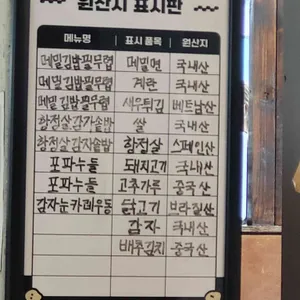 원산지 표시판
메뉴명 표시 품목 원산지
메밀김밥필무렵 메밀면 국내산
메밀김밥필무렵 계란 국내산
메밀김밥필무렵 새우튀김 베트남산
항정살감자솥밥 쌀 국내산
항정살감자솥밥 항정살 스페인산
포파누들 돼지고기 국내산
포파누들 고추가루 중국산
감자눈카레우동 닭고기 브라질산
감자 국내산
배추김치 중국산